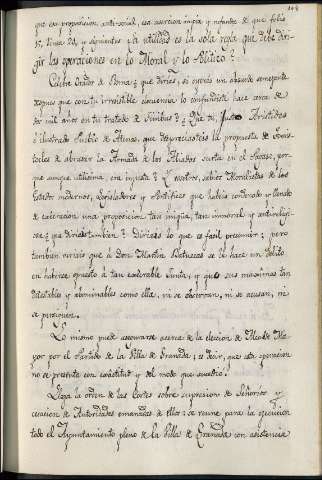 que esa proposicion anti-social, esa asercion impia y nefanda de que folio
15, linea 24, y siguientes ¿la utilidad es la sola regla que debe diri-
gir las operaciones en lo Moral y lo Politico?
Celebre Orador de Roma ¿que dirias, si oyeras un absurdo semejante
despues que con tu irresistible elocuencia lo confundiste hace cerca de
dos mil años en tu tratado de Finibus? ¿Que tu, Justo Aristides
é ilustrado Pueblo de Atenas, que despreciasteis la propuesta de Temis-
tocles de abrasar la Armada de los Aliados surta en el, por-
que aunque utilisima era injusta? Y vosotros, sabios Moralistas de los
Estados modernos, Legisladores y Pontifices que habeis condenado y llenado
de execracion una proposicion tan impia, tan inmoral y antireligio-
sa ¿que diriais tambien? Diriais lo que es facil presumir; pero
tambien veriais que á Don Martin Batuecas se le hace un delito
en haberse opuesto á tan execrable Junta, y que sus maximas tan
detestables y abominables como ella, ni se observan, ni se acusan, ni
se persiguen.
Lo mismo puede asegurarse acerca de la eleccion de Alcalde Ma-
yor por el Partido de la Villa de Granada, es decir, que esta operacion
no se presenta con exactitud y del modo que sucedió.
Llega la orden de las Cortes sobre supresion de Señorios y
creacion de Autoridades emanadas de ellos: se reune para la egecucion
todo el Ayuntamiento pleno de la Villa de Granada con asistencia